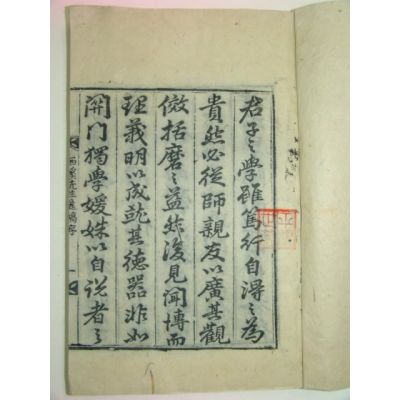 君子之學雖篤行自得之爲
貴然必從師親友以廣其觀
儆括磨之益然後見聞博而
理義明以成就其德器非如
開門獨學媛姝以自說者之
先生遺稿序